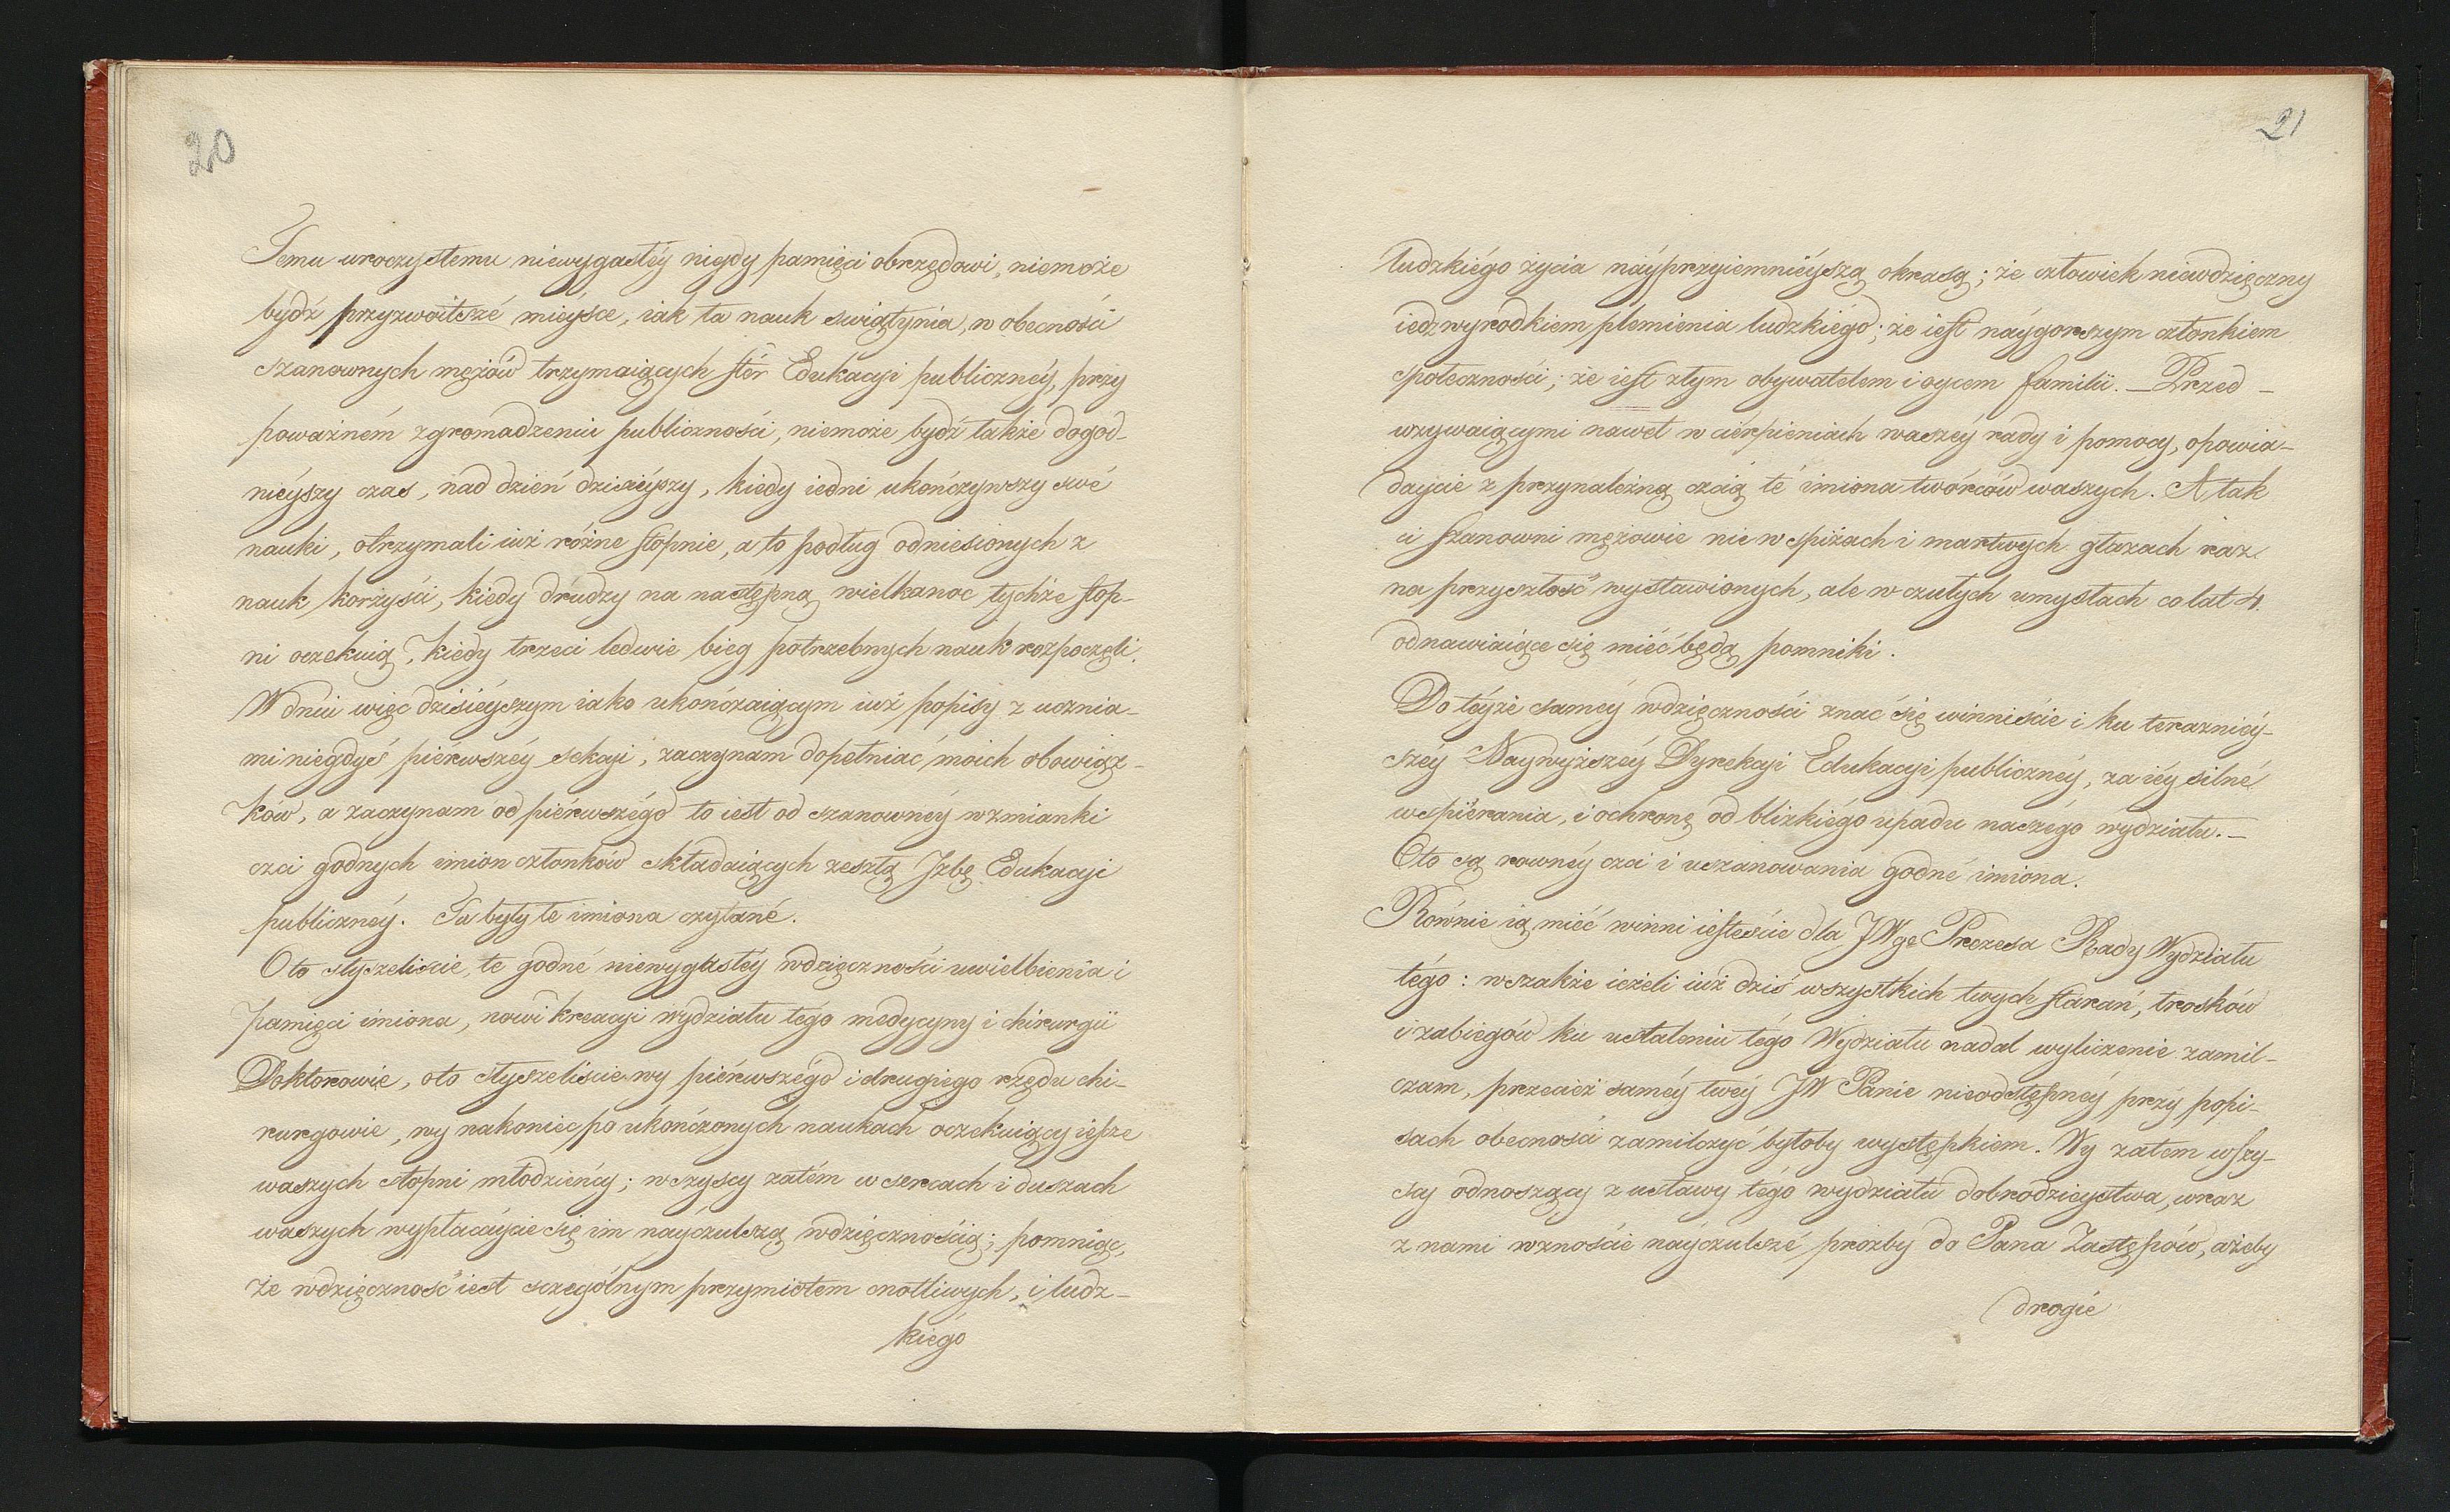 20
Temu uroczystemu niewygastéy nigdy pamięci obrzędowi, niemoże
bydź przyzwoitszé mieysce, iak ta nauk swiątynia, w obecności
szanownych mężów trzymaiących stér Edukacyi publicznéy, przy
poważném zgromadzeniu publiczności, niemoże bydź także dogod-
nieyszy czas, nad dzień dzisieyszy, kiedy iedni ukończywszy swé
nauki, otrzymali iuż różne stopnie, a to podług odniesionych z
nauk korzyści, kiedy drudzy na następną wielkanoc tychże stop-
ni oczekuią, kiedy trzeci ledwie bieg potrzebnych nauk rozpoczęli.
W dniu więc dzisiéyszym iako ukończaiącym iuż popisy z ucznia-
mi niegdyś piérwszéy sekcyi, zaczynam dopełniać moich obowiąz-
ków, a zaczynam od piérwszégo to iest od szanownéy wzmianki
czci godnych imion członków składaiących zeszłą Jzbę Edukacyi
publicznéy. Tu były te imiona czytané.
Oto słyszeliście, te godné niewygasłéy wdzięczności uwielbienia i
pamięci imiona, nowi kreacyi wydziału tégo medycyny i chirurgii
Doktorowie, oto słyszeliście wy piérwszégo i drugiego rzędu chi-
rurgowie, wy nakoniec po ukończonych naukach oczekuiący ieszcze
waszych stopni młodzieńcy; wszyscy zatém w sercach i duszach
waszych wypłacaycie się im nayczulszą wdzięcznością; pomniąc,
że wdzięczność iest szczególnym przymiotem cnotliwych, i ludz-
kiégo
21
ludzkiégo życia náyprzyiemniéyszą okrasą; że człowiek niewdzięczny
iest wyrodkiem plemienia ludzkiégo; że iest náygorszym członkiem
społeczności; że iest złym obywatelem i oycem familii. — Przed -
wzywaiącymi nawet w ciérpieniach waszéy rady i pomocy, opowia-
daycie z przynależną czcią té imiona twórców waszych. A tak
ci szanowni mężowie nie w spiżach i martwych głazach raz
na przyszłość wystawionych, ale w czułych umysłach co lat 4.
odnawiaiące się miéć będą pomniki.
Do téyże saméy wdzięczności znać się winniście i ku terazniéy-
széy Naywyższéy Dyrekcyi Edukacyi publicznéy, za iéy silné
wspiérania, i ochronę od blizkiégo upadu naszégo wydziału. —
Oto są rownéy czci i uszanowania godné imiona.
Równie ią miéć winni iesteście dla JWgo Prezesa Rady Wydziału
tégo: wszakże ieżeli iuż dziś wszystkich twych starań, trosków
i zabiegów ku ustaleniu tégo Wydziału nadal wyliczenie zamil-
czam, przecież saméy twéy JW Panie nieodstępnéy przy popi-
sach obecności zamilczyć byłoby występkiem. Wy zatem wszy-
scy odnoszący z ustawy tégo wydziału dobrodzieystwa, wraz
z nami wznoście náyczulszé prozby do Pana Zastępów, ażeby
drogié